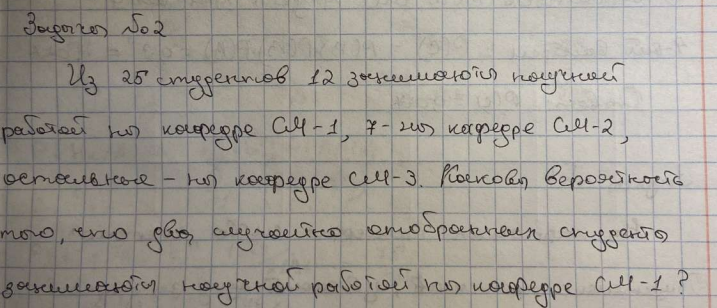 Задача №2
Из 25 студентов 12 занимаются научной
работой на кафедре СМ-1, 7-на кафедре СМ-2,
остальные - на кафедре СМ-3. Какова вероятность
того, что два случайно отобранных студента
занимаются научной работой на кафедре СМ-1?